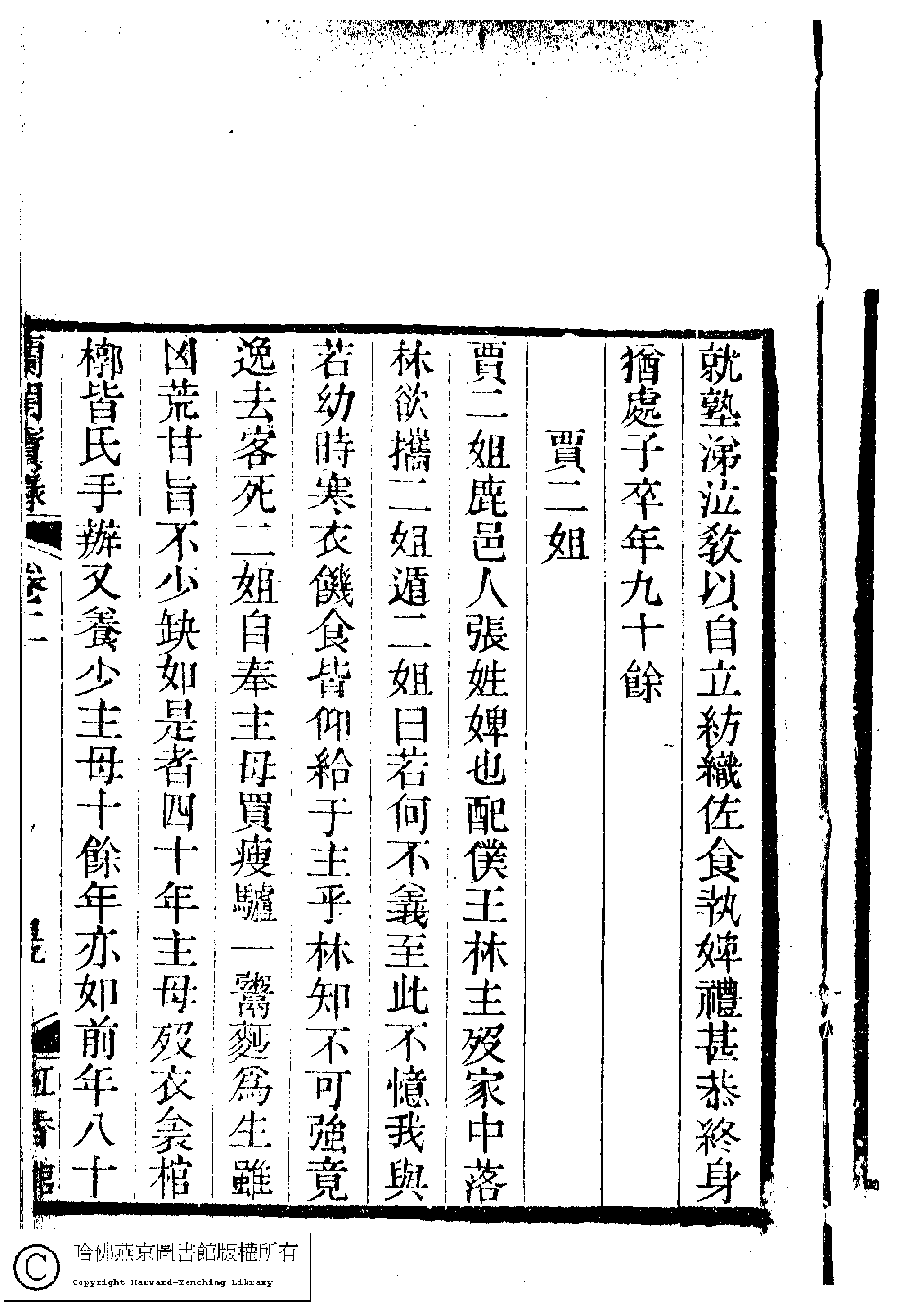 就塾涕泣敎以自立紡織佐食執婢禮甚恭終身
猶處子卒年九十餘
賈二姐
賈二姐鹿邑人張姓婢也配僕王林主歿家中落
林欲攜二姐遁二姐曰若何不義至此不憶我與
若幼時寒衣饑食皆仰給于主乎林知不可強竟
逸去客死二姐自奉主母買瘦驢一鬻麫爲生雖
凶荒甘旨不少缺如是者四十年主母歿衣衾棺
槨皆氏手辦又養少主母十餘年亦如前年八十
蘭閨寶錄 卷二 紅香館
哈佛燕京圖書館版權所有
Copyright Harvard-Yenching Library